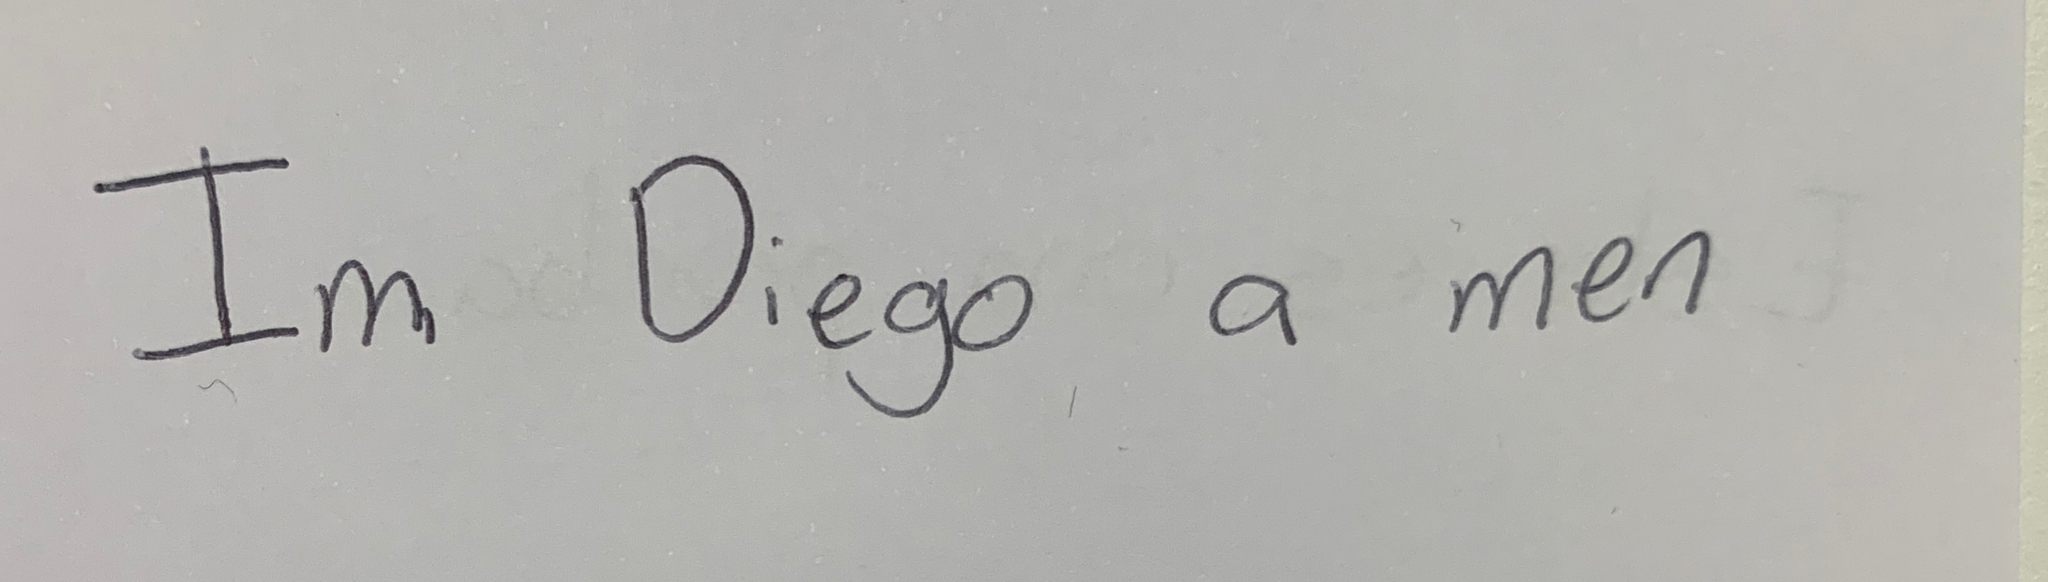 Im Diego a men